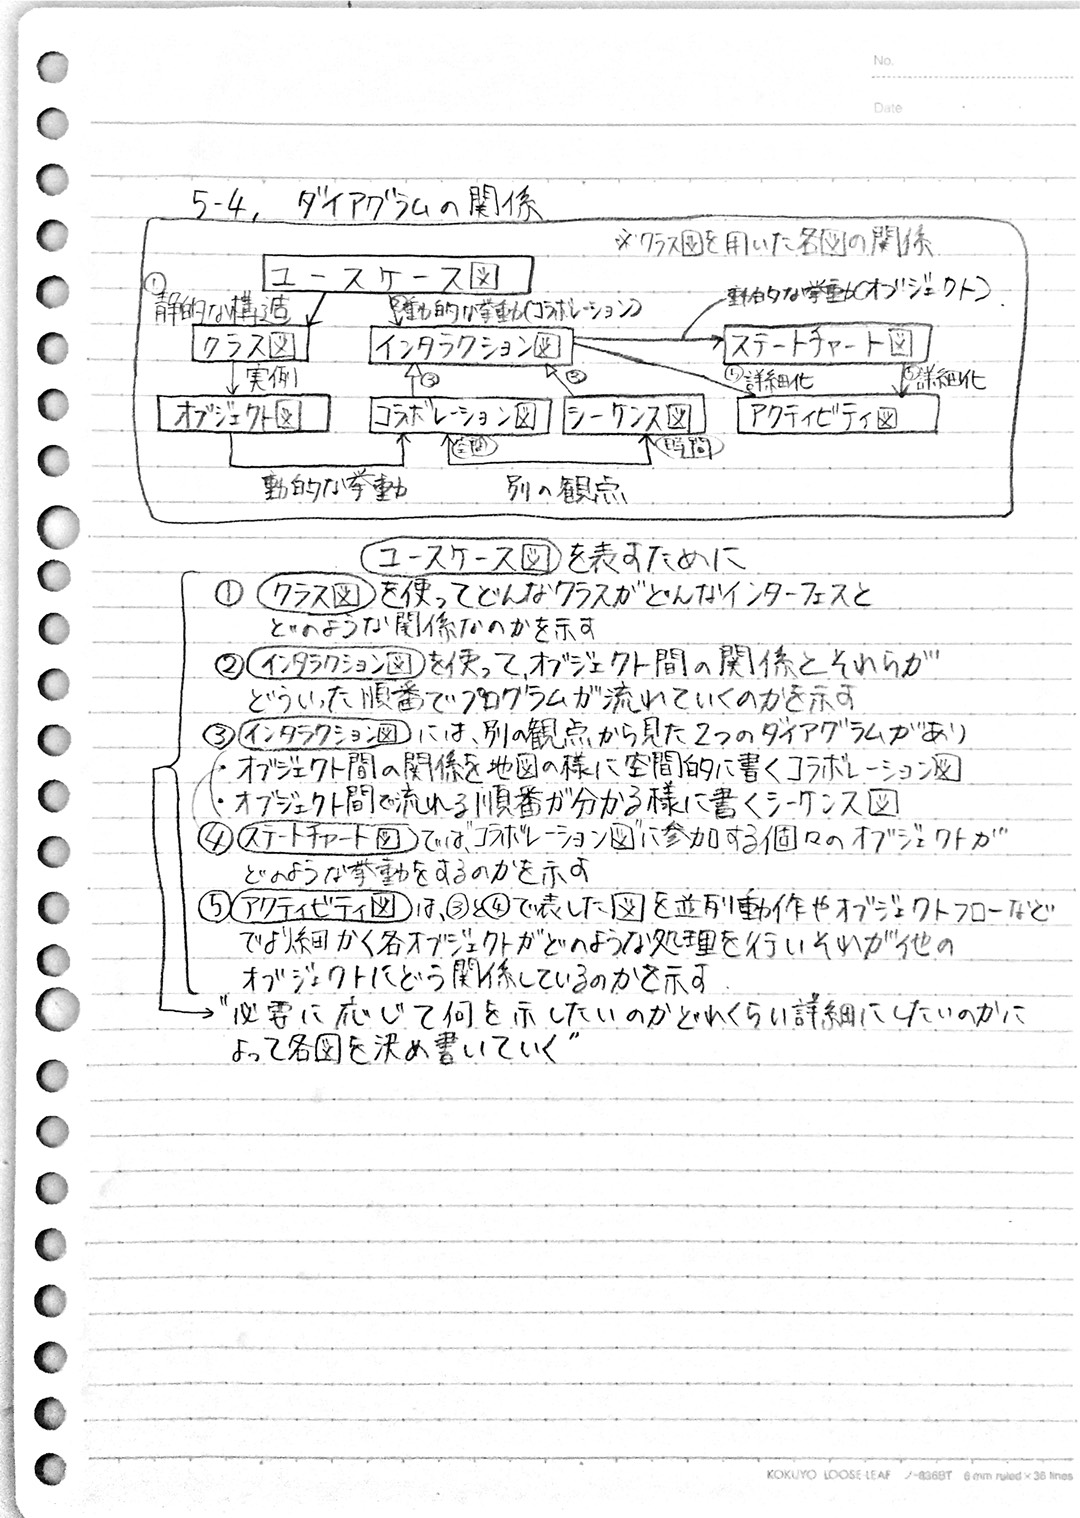 No.
Date
5-4, ダイアグラムの関係
※クラス図を用いた各図の関係
ユースケース図
① 静的な構造
動的な挙動(コラボレーション)
動的な挙動(オブジェクト)
クラス図
インタラクション図
ステートチャート図
実例
③
③
④詳細化
詳細化
オブジェクト図
コラボレーション図
シーケンス図
アクティビティ図
空間
時間
動的な挙動
別の観点
ユースケース図を表すために
① クラス図を使ってどんなクラスがどんなインターフェスと
どのような関係なのかを示す
② インタラクション図を使って、オブジェクト間の関係とそれらが
どういった順番でプログラムが流れていくのかを示す
③ インタラクション図には、別の観点から見た2つのダイアグラムがあり
・オブジェクト間の関係を地図の様に空間的に書くコラボレーション図
・オブジェクト間で流れる順番が分かる様に書くシーケンス図
④ ステートチャート図では"コラボレーション図"に参加する個々のオブジェクトが
どのような挙動をするのかを示す
⑤ アクティビティ図は、③と④で表した図を並列動作やオブジェクトフローなど
でより細かく各オブジェクトがどのような処理を行いそれが他の
オブジェクトにどう関係しているのかを示す.
"必要に応じて何を示したいのかどれくらい詳細にしたいのかに
よって各図を決め書いていく"
KOKUYO LOOSE-LEAF ノ-836BT 6 mm ruled × 36 lines